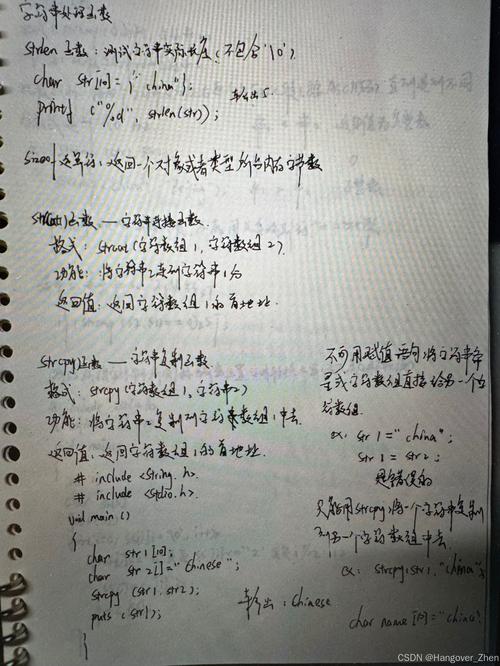 字符串处理函数
strlen 函数：测试字符串实际长度（不包含'\0'）
char str[10]={"china"};
printf ("%d", strlen(str));
输出5
sizeof 运算符，返回一个对象或者类型所占内存字节数
strcat()函数——字符串连接函数
格式：strcat(字符数组1，字符数组2)
功能：将字符串2连到字符串1后
返回值：返回字符数组1的首地址.
strcpy函数——字符串复制函数
格式：strcpy(字符数组1，字符串2)
功能：将字符串2复制到字符数组1中去.
返回值，返回字符数组1的首地址.
# include <string.h>
# include <stdio.h>
void main ()
{
char str1[10];
char str2[]="Chinese";
strcpy (str1, str2);
puts (str1);
}
输出：Chinese
不可用赋值语句将字符串常
量或字符数组直接给另一个字
符数组.
ex: str1="china";
str1=str2;
是错误的
只能用strcpy将一个字符串复制
到另一个字符数组中去
ex: strcpy(str1,"china");
char name[10]="china";
CSDN @Hangover_Zhen